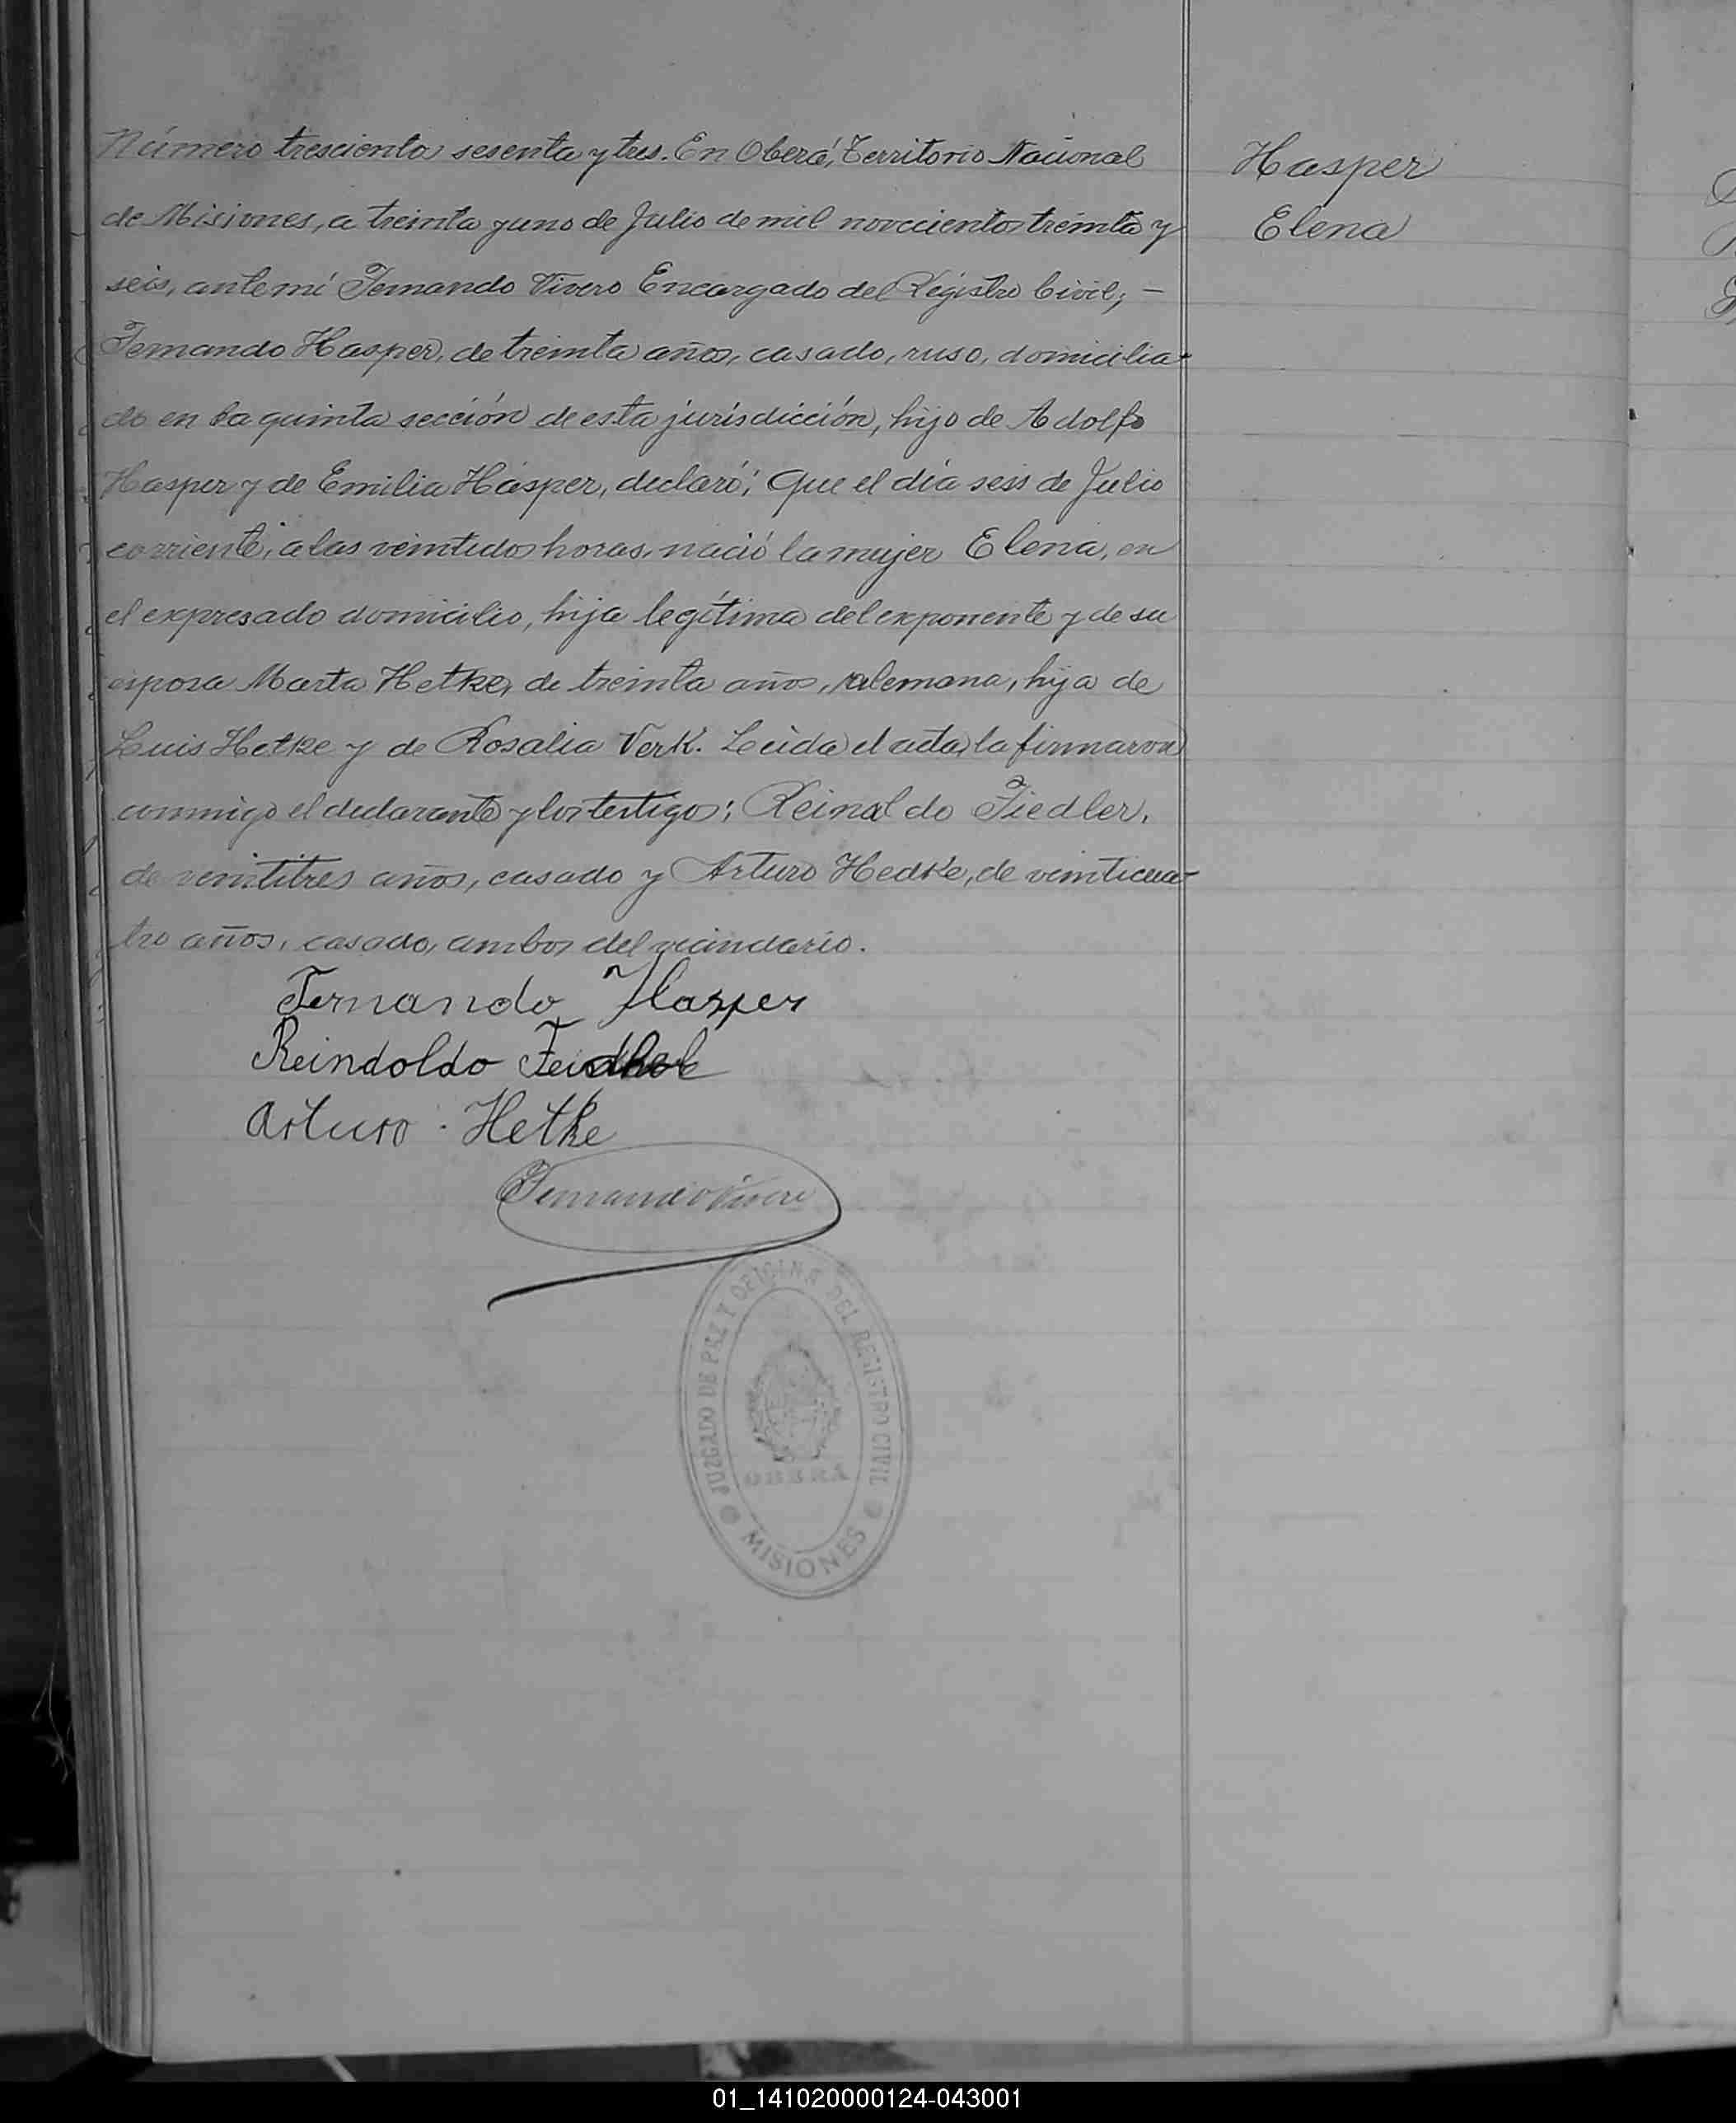 Número trescientos sesenta y tres. En Oberá, Territorio Nacional
de Misiones, a treinta y uno de Julio de mil novecientos treinta y
seis, ante mí Fernando Vivero Encargado del Registro Civil; —
Fernando Hasper, de treinta años, casado, ruso, domicilia-
do en la quinta sección de esta jurisdicción, hijo de Adolfo
Hasper y de Emilia Hásper, declaró: Que el día seis de Julio
corriente, a las veintidos horas, nació la mujer Elena, en
el expresado domicilio, hija legítima del exponente y de su
esposa Marta Hetke, de treinta años, alemana, hija de
Luis Hetke y de Rosalia Verk. Leída el acta, la firmaron
conmigo el declarante y los testigos: Reinaldo Fiedler,
de veintitres años, casado y Arturo Hedke, de veinticua-
tro años, casado, ambos del vecindario.
Fernando Hasper
Reindoldo
Arturo Hetke
Fernando Vivero
JUZGADO DE PAZ Y OFICINA DEL REGISTRO CIVIL
OBERÁ
MISIONES
Hasper
Elena
01_141020000124-043001